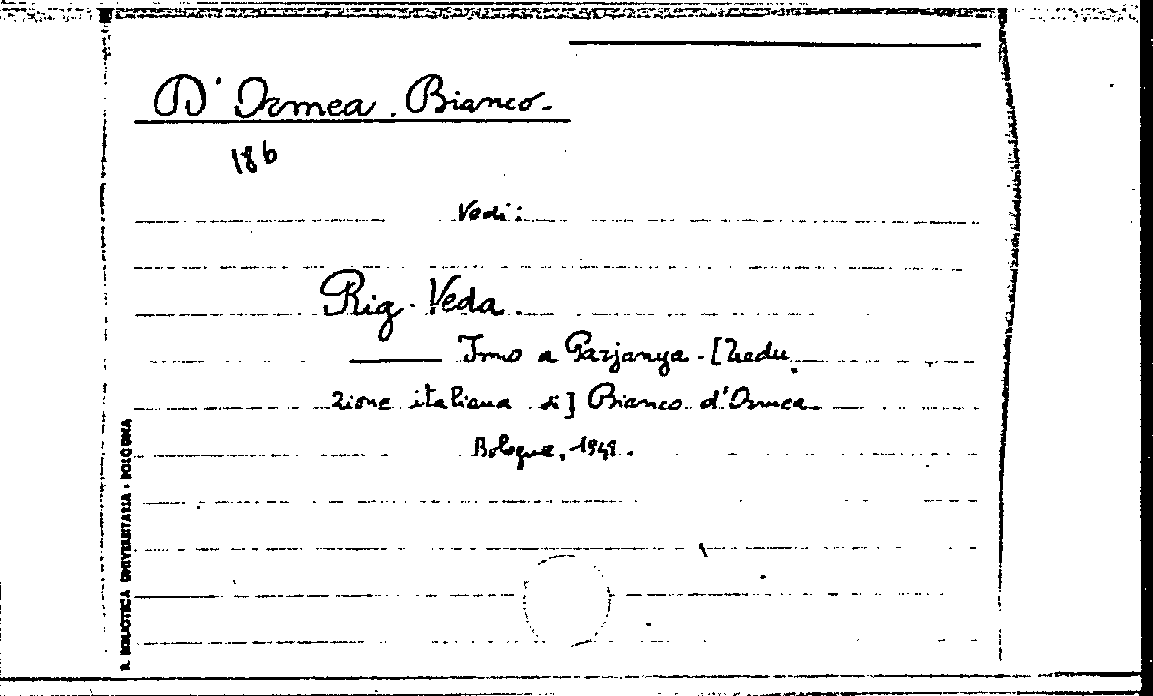 D'Ormea. Bianco-
186
Vedi:
Rig-Veda.
Inno a Parjanya-[Tradu
zione italiana di] Bianco d'Ormea.
Bologna, 1949.
R. BIBLIOTECA UNIVERSITARIA - BOLOGNA